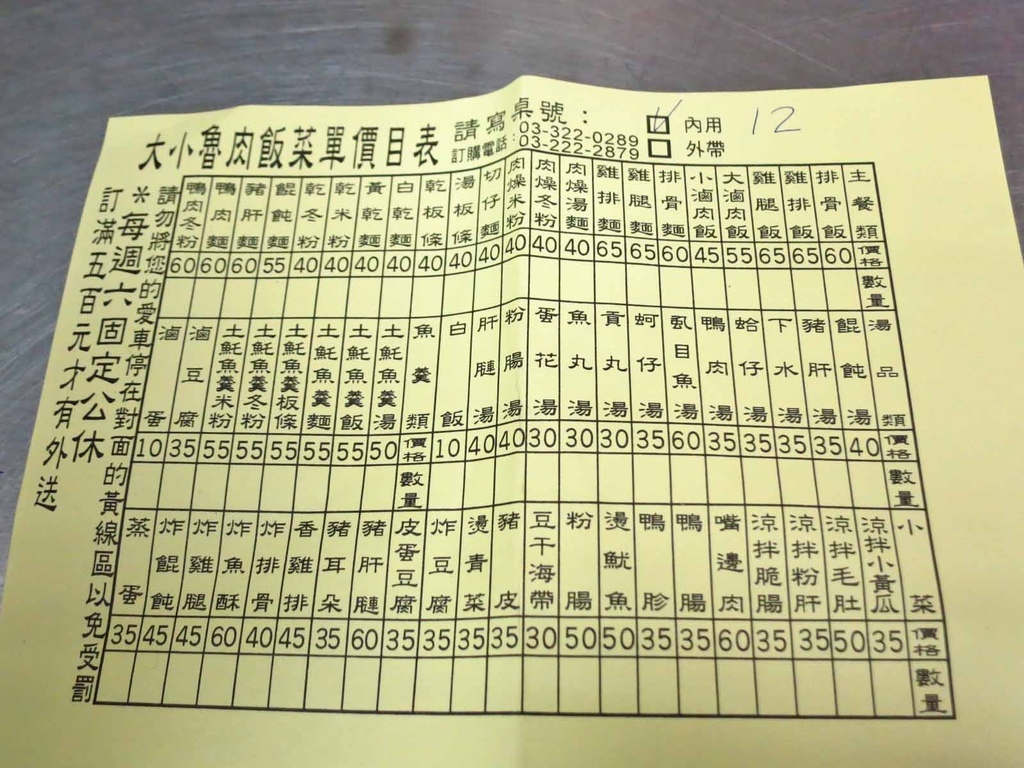 大小魯肉飯菜單價目表
請寫桌號：
訂購電話：03-322-0289
03-222-2879
內用
外帶
12
主餐類 價格 數量
排骨飯 60
雞排飯 65
雞腿飯 65
大滷肉飯 55
小滷肉飯 45
排骨麵 60
雞腿麵 65
雞排麵 65
肉燥湯麵 40
肉燥冬粉 40
肉燥米粉 40
切仔麵 40
湯板條 40
乾板條 40
白乾麵 40
黃乾麵 40
乾米粉 40
乾冬粉 40
餛飩麵 55
豬肝麵 60
鴨肉麵 60
鴨肉冬粉 60
湯品類 價格 數量
餛飩湯 40
豬肝湯 35
下水湯 35
蛤仔湯 35
鴨肉湯 35
虱目魚湯 60
蚵仔湯 35
貢丸湯 30
魚丸湯 30
蛋花湯 30
粉腸湯 40
肝膁湯 40
白飯 10
魚羹類 價格 數量
土魠魚羹湯 50
土魠魚羹飯 55
土魠魚羹麵 55
土魠魚羹板條 55
土魠魚羹冬粉 55
土魠魚羹米粉 55
滷豆腐 35
滷蛋 10
小菜 價格 數量
涼拌小黃瓜 35
涼拌毛肚 50
涼拌粉肝 35
涼拌脆腸 35
嘴邊肉 60
鴨腸 35
鴨胗 35
燙魷魚 50
粉腸 50
豆干海帶 30
豬皮 35
燙青菜 35
炸豆腐 35
皮蛋豆腐 35
豬肝膁 60
豬耳朵 35
香雞排 45
炸排骨 40
炸魚酥 60
炸雞腿 45
炸餛飩 45
蒸蛋 35
請勿將您的愛車停在對面的黃線區以免受罰
＊每週六固定公休
訂滿五百元才有外送